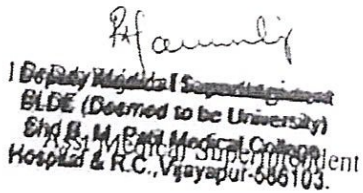 Deputy Medical Superintendent
BLDE (Deemed to be University)
Shri B. M. Patil Medical College
Asst Medical Superintendent
Hospital & R.C., Vijayapur-586103.